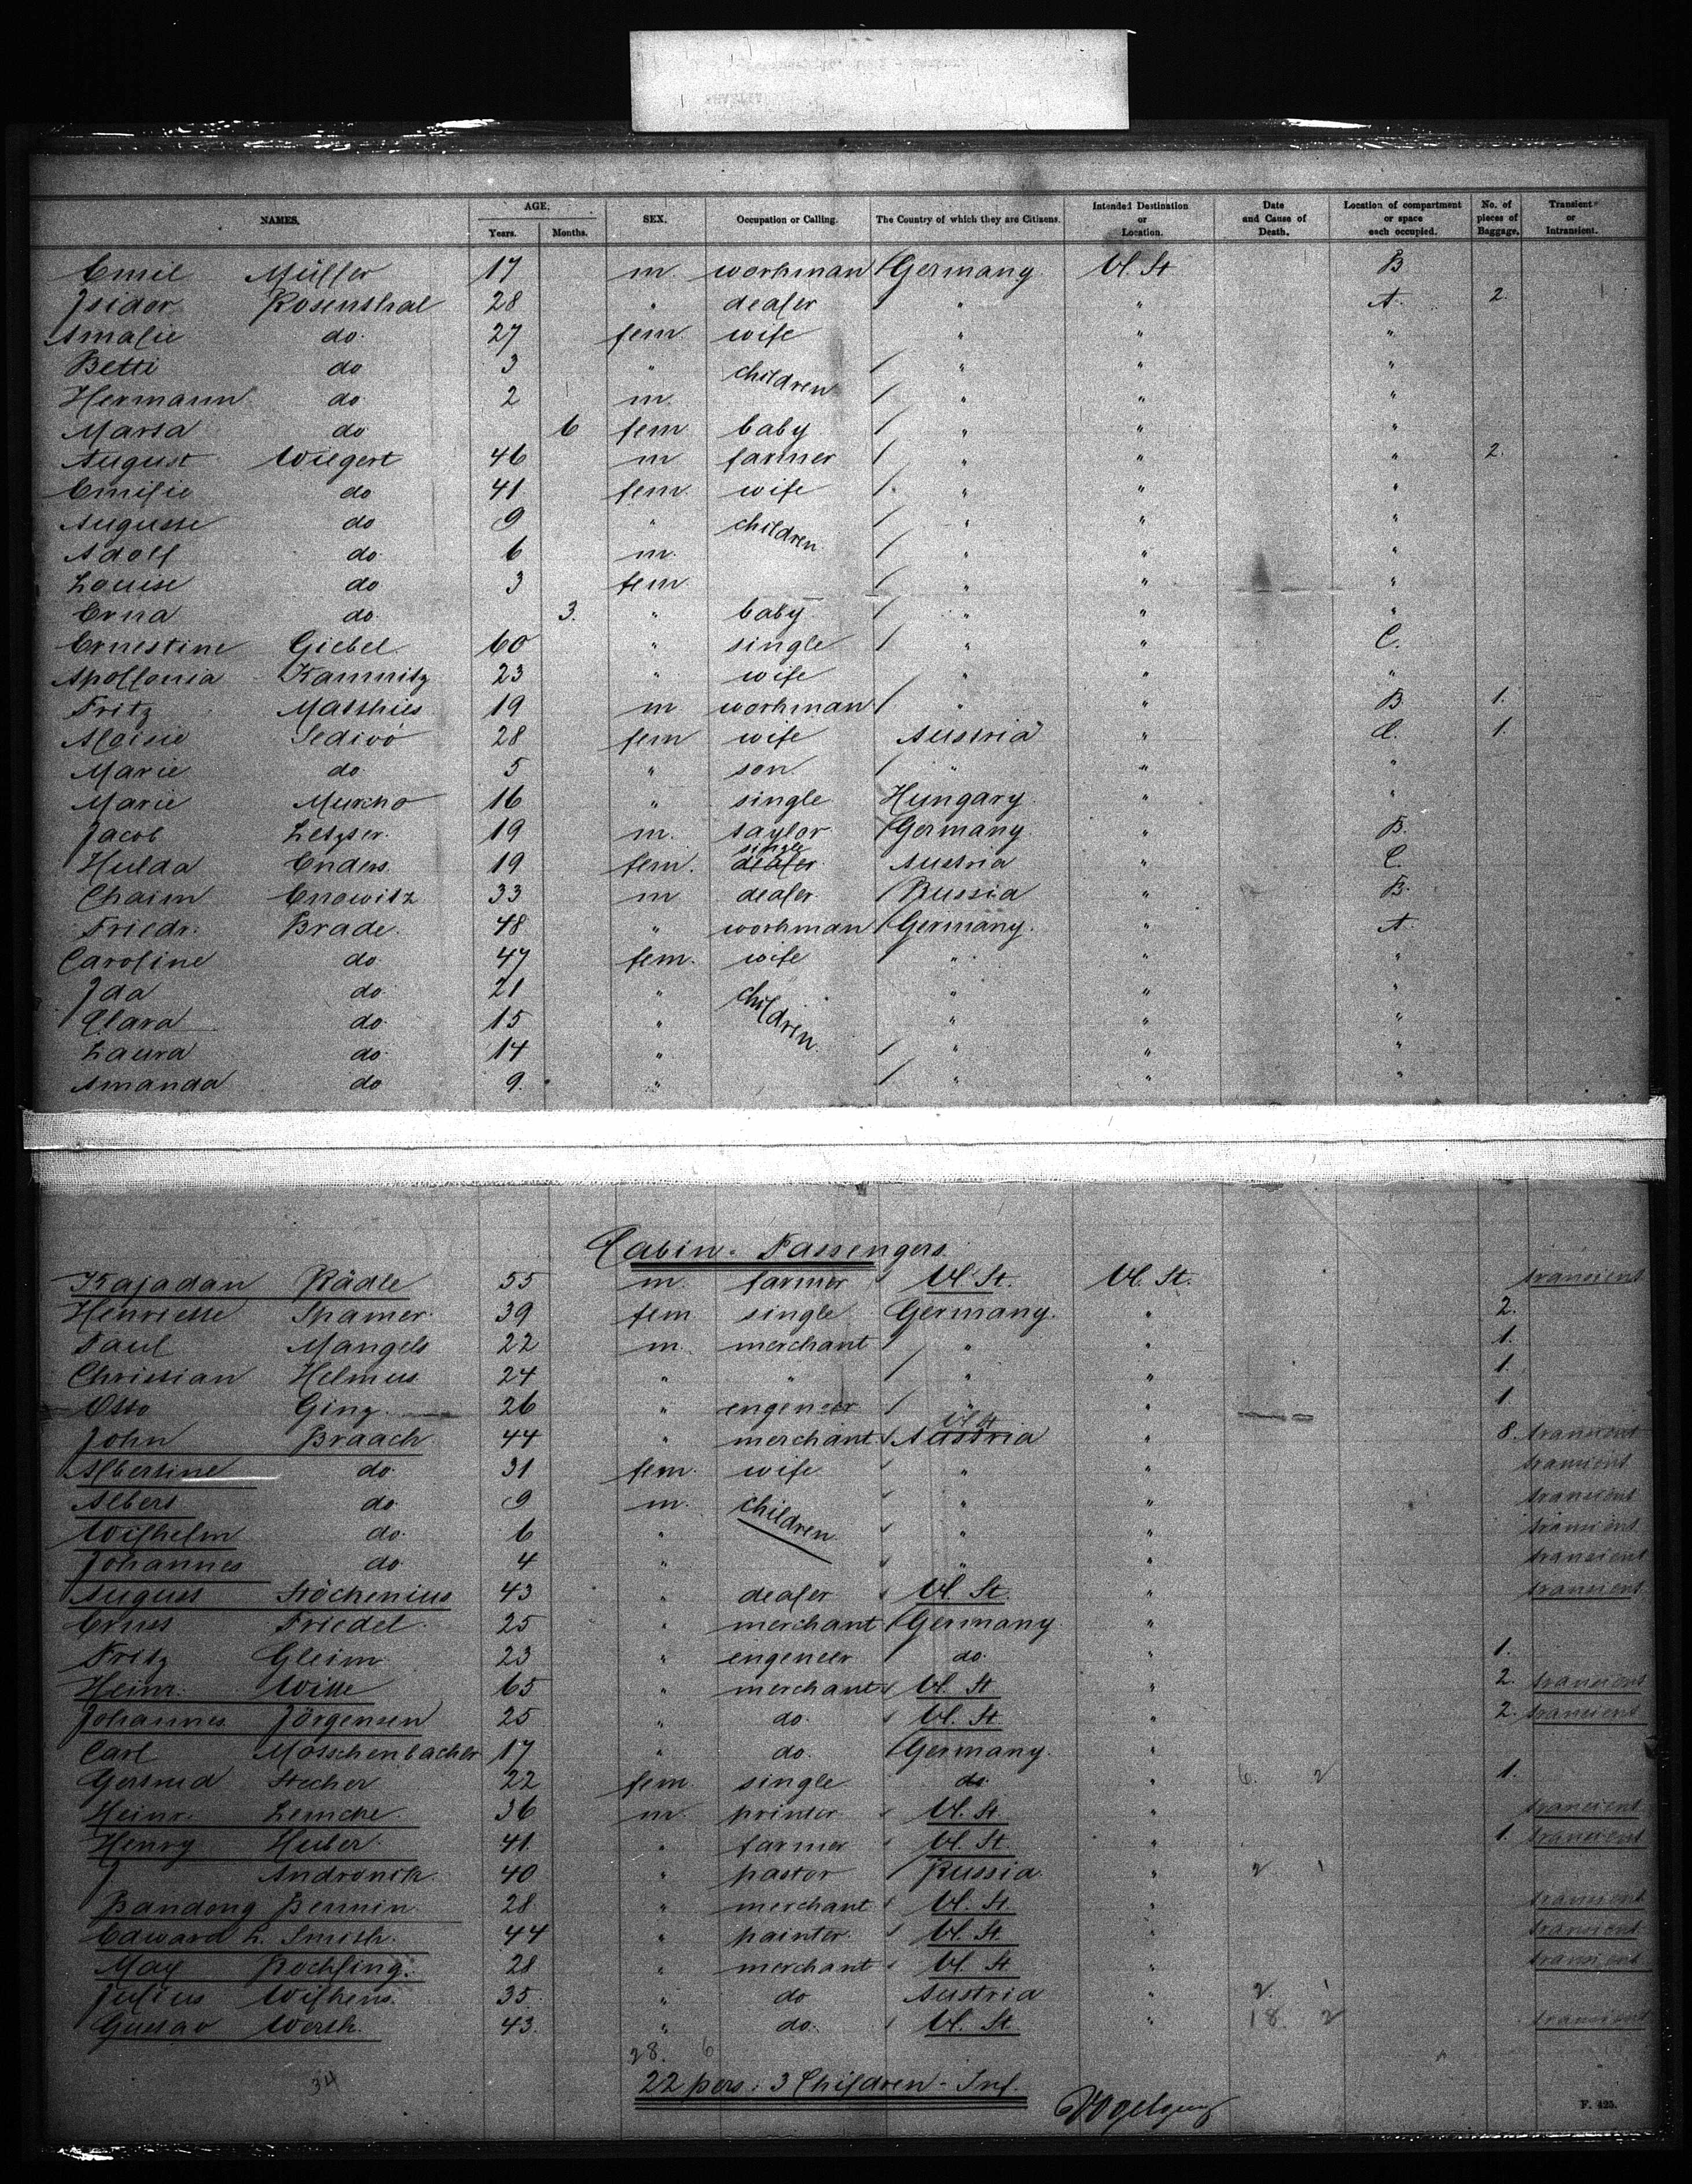 NAMES. AGE. Years. Months. SEX. Occupation or Calling. The Country of which they are Citizens. Intended Destination or Location. Date and Cause of Death. Location of compartment or space each occupied. No. of pieces of Baggage. Transient or Intransient.
Emil Müller 17 m. workman Germany U. St. B
Isidor Rosenthal 28 " dealer " " A. 2.
Amalie do. 27 fem. wife " " "
Betti do 3 " children " " "
Hermann do 2 m. " " "
Marta do 6 fem baby " " "
August Wiegert 46 m farmer " " " 2.
Emilie do 41 fem. wife " " "
Auguste do 9 " children " " "
Adolf do. 6 m. " " "
Louise do 3 fem. " " "
Erna do. 3. " baby " " "
Ernestine Giebel. 60 " single " " C.
Apollonia Kamnitz 23 " wife " " "
Fritz Matthies 19 m workman " " B. 1.
Aloisie Sedivo 28 fem wife Austria " C. 1.
Marie do. 5 " son. " " "
Marie Murcho 16 " single Hungary. " "
Jacob Letzter. 19 m. taylor Germany " B.
Hulda Enders. 19 fem. single dealer Austria " C.
Chaim Enowitz 33 m dealer Russia " B.
Friedr. Brade. 48 " workman Germany. " A.
Caroline do. 47 fem. wife " " "
Ida do. 21 " children " " "
Clara do. 15 " " " "
Laura do. 14 " " " "
Amanda do 9. " " " "
Cabin-Passengers.
Kajadan Rädle 55 m. farmer U. St. U. St. transient
Henriette Spamer. 39 fem single Germany. " 2.
Paul Mangels 22 m. merchant " " 1.
Christian Helmus 24 " " " " 1.
Otto Ginz. 26 " engeneer " " 1
John Braach. 44 " merchant U. St. Austria " 8. transient
Albertine do. 31 fem. wife " " transient
Albert do. 9 m. children " " transient
Wilhelm do. 6 " " " transient
Johannes do. 4 " " " transient
August Stöckenius 43 " dealer U. St. " transient
Ernst Friedel. 25 " merchant Germany "
Fritz Gleim 23 " engeneer do. " 1.
Heinr. Witte 65 " merchant U. St " 2. transient
Johannes Jörgensen 25 " do. U. St. " 2. transient
Carl Motschenbacher 17 " do. Germany. "
Gertrud Stecher 22 fem. single do. " 6. 2 1.
Heinr. Lemcke 36 m. printer U. St. " transient
Henry Huber. 41. " farmer U. St. " 1. transient
J Andronik. 40 " pastor Russia. " 2 1
Bandong Bennin. 28 " merchant U. St. " transient
Edward L. Smith. 44 " painter. U. St. " transient
May Rochling. 28 " merchant U. St " transient
Julius Wilkens. 35. " do Austria " 2. 1
Gustav Werth. 43. " do. U. St. " 18. 2 transient
28. 6
34
22 pers. 3 Children - Inf.
F. 425.